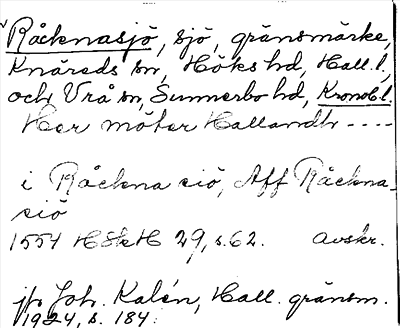 Råcknasjö, sjö, gränsmärke,
Knäreds sn, Höks hd, Hall. l.,
och Vrå sn, Sunnerbo hd, Kronob. l.
Her möter Hallandh ----
i Råckna siö, Aff Råckna-
siö
1554 HSkH 29, s. 62. avskr.
jfr Joh. Kalén, Hall. gränsm.
1924, s. 184.